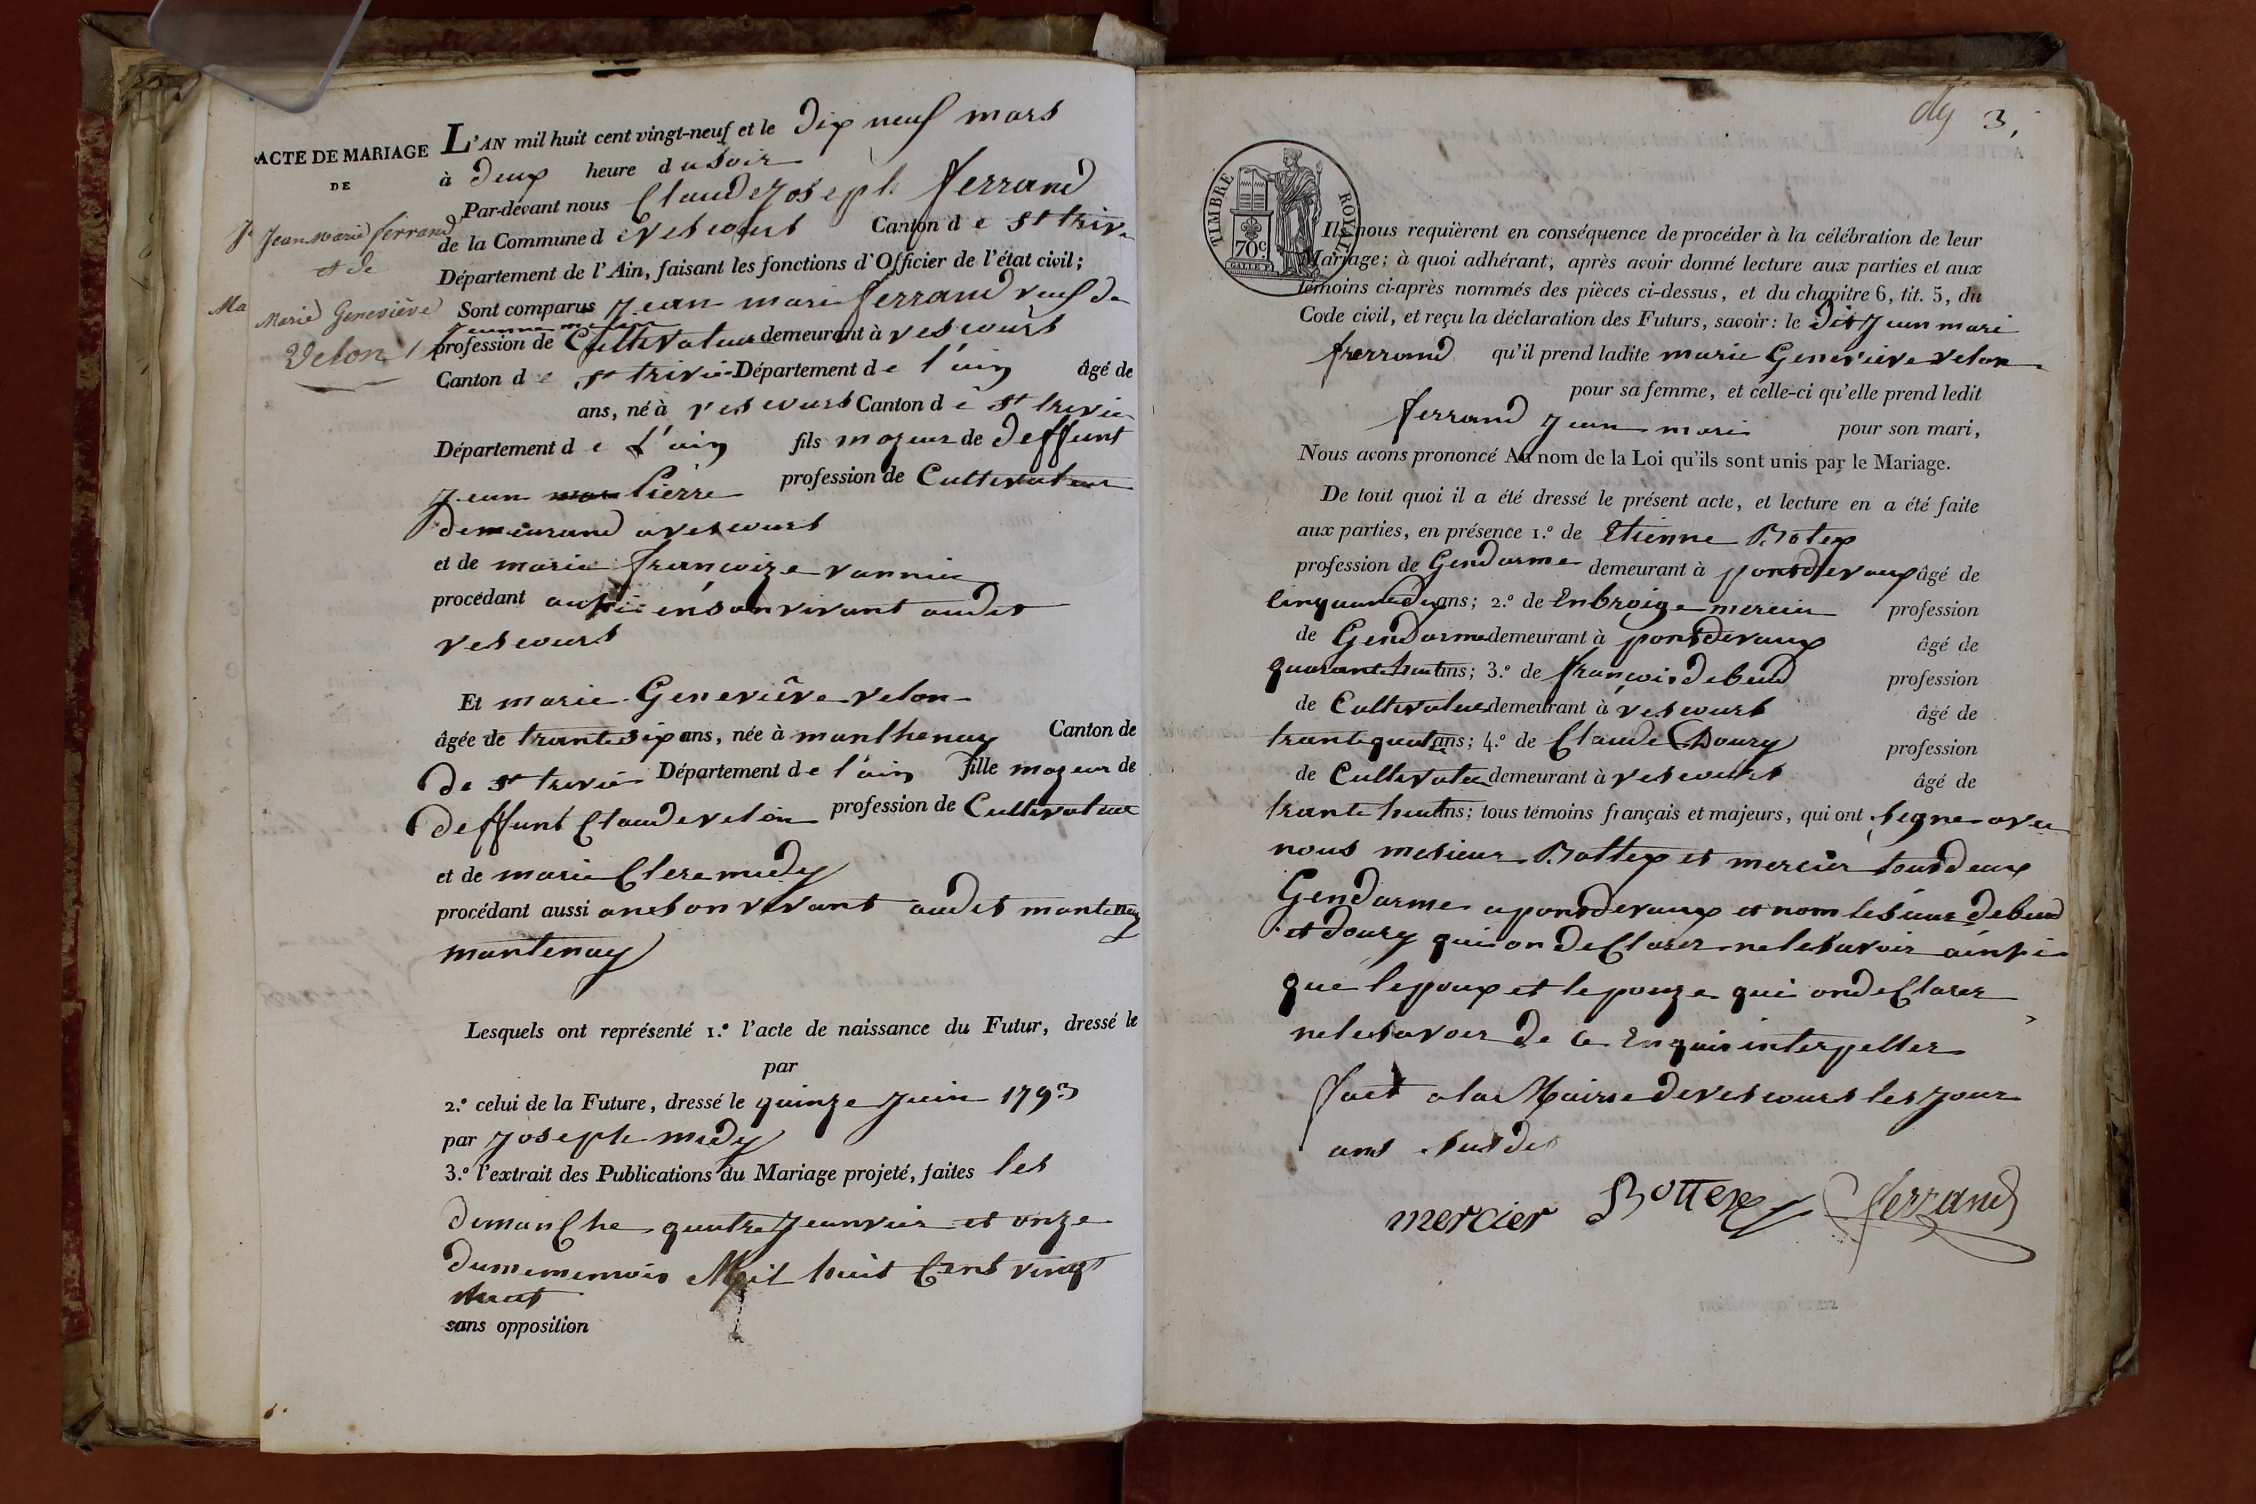 ACTE DE MARIAGE
DE
Jean marie ferrand
et de
Marie Geneviève
Velon
L'AN mil huit cent vingt-neuf et le dix neuf mars
à deux heure du soir
Par-devant nous Claude Joseph ferrand
de la Commune d e vescours Canton d e st trivie
Département de l'Ain, faisant les fonctions d'Officier de l'état civil;
Sont comparus Jean mari ferrand veuf de
profession de Cultivateur demeurant à vescours
Canton d e st trivie Département d e l'ain âgé de
ans, né à vescours Canton d e st trivie
Département d e L'ain fils mageur de deffunt
Jean Pierre profession de Cultivateur
demeurand a vescours
et de marie françoize vannier
procédant en son vivant audit
vescours
Et marie Geneviêve velon
âgée de trante six ans, née à manthenay Canton de
de st trivie Département d e l'ain fille mageur de
deffunt Claude velon profession de Cultivateur
et de marie Clere midy
procédant aussi an son vivant audit mantenay
mantenay
Lesquels ont représenté 1.º l'acte de naissance du Futur, dressé le
par
2.º celui de la Future, dressé le quinze Juin 1793
par Joseph midy
3.º l'extrait des Publications du Mariage projeté, faites les
dimanche quatre Jeanvier et onze
du meme mois Mil huit Cent vingt
huit
sans opposition
3,
TIMBRE ROYAL
70c.
Ils nous requièrent en conséquence de procéder à la célébration de leur
Mariage; à quoi adhérant, après avoir donné lecture aux parties et aux
témoins ci-après nommés des pièces ci-dessus, et du chapitre 6, tit. 5, du
Code civil, et reçu la déclaration des Futurs, savoir: le dit Jean mari
frerrand qu'il prend ladite marie Geneviève velon
pour sa femme, et celle-ci qu'elle prend ledit
ferrand Jean mari pour son mari,
Nous avons prononcé Au nom de la Loi qu'ils sont unis par le Mariage.
De tout quoi il a été dressé le présent acte, et lecture en a été faite
aux parties, en présence 1.º de Etienne Botex
profession de Gendarme demeurant à pontdevaux âgé de
cinquantedeux ans; 2.º de Enbroize mercier profession
de Gendarme demeurant à pontdevaux âgé de
quarante huit ans; 3.º de françois debeud profession
de Cultivateur demeurant à vescours âgé de
trante quatre ans; 4.º de Claude Doury profession
de Cultivateu demeurant à vescours âgé de
trante huit ans; tous témoins français et majeurs, qui ont signe avec
nous mesieur Bottex et mercier tous deux
Gendarme a pontdevaux et nom les ieur debeud
et doury qui on de Clarer ne le savoir ainsi
que lepoux et lepouze qui on de Clarer
ne le savoir de ce Enquis interpeller
fait a la Mairie de vescours les Jour
ans susdit
mercier Bottex ferrand